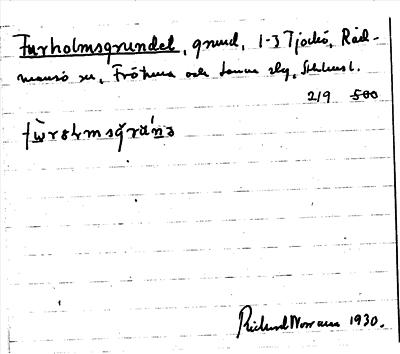 Furholmsgrundet, grund, 1-3 Tjockö, Råd-
mansö sn, Frötuna och Länna slg, Sthlms l.
219 500
fùrɷlmsgrán̄ə
Richard Norman 1930.